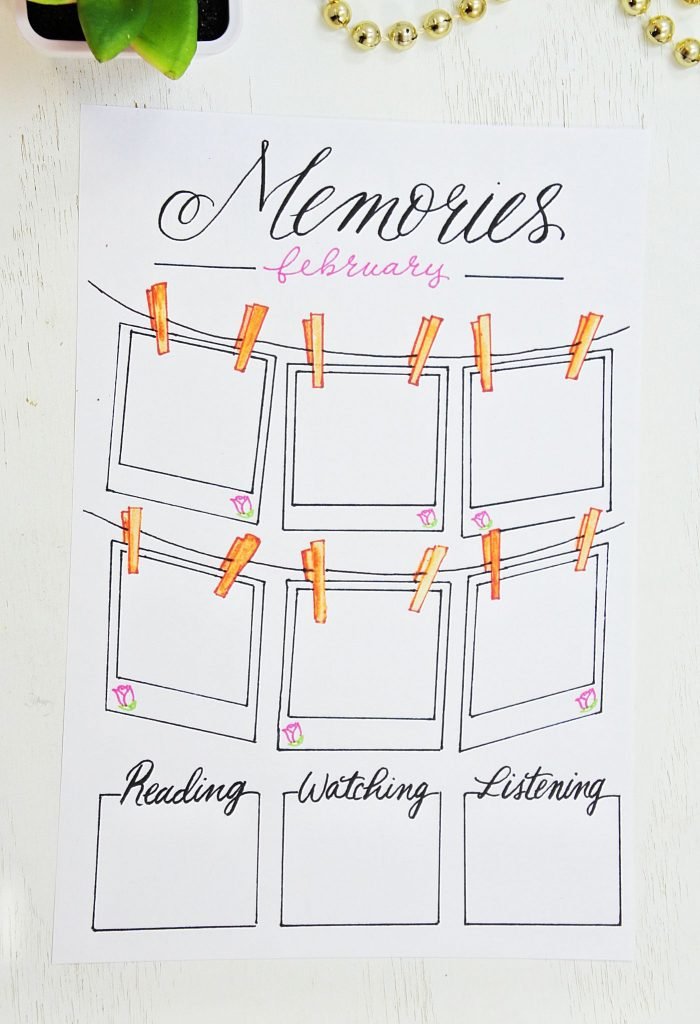 Memories
february
Reading Watching Listening